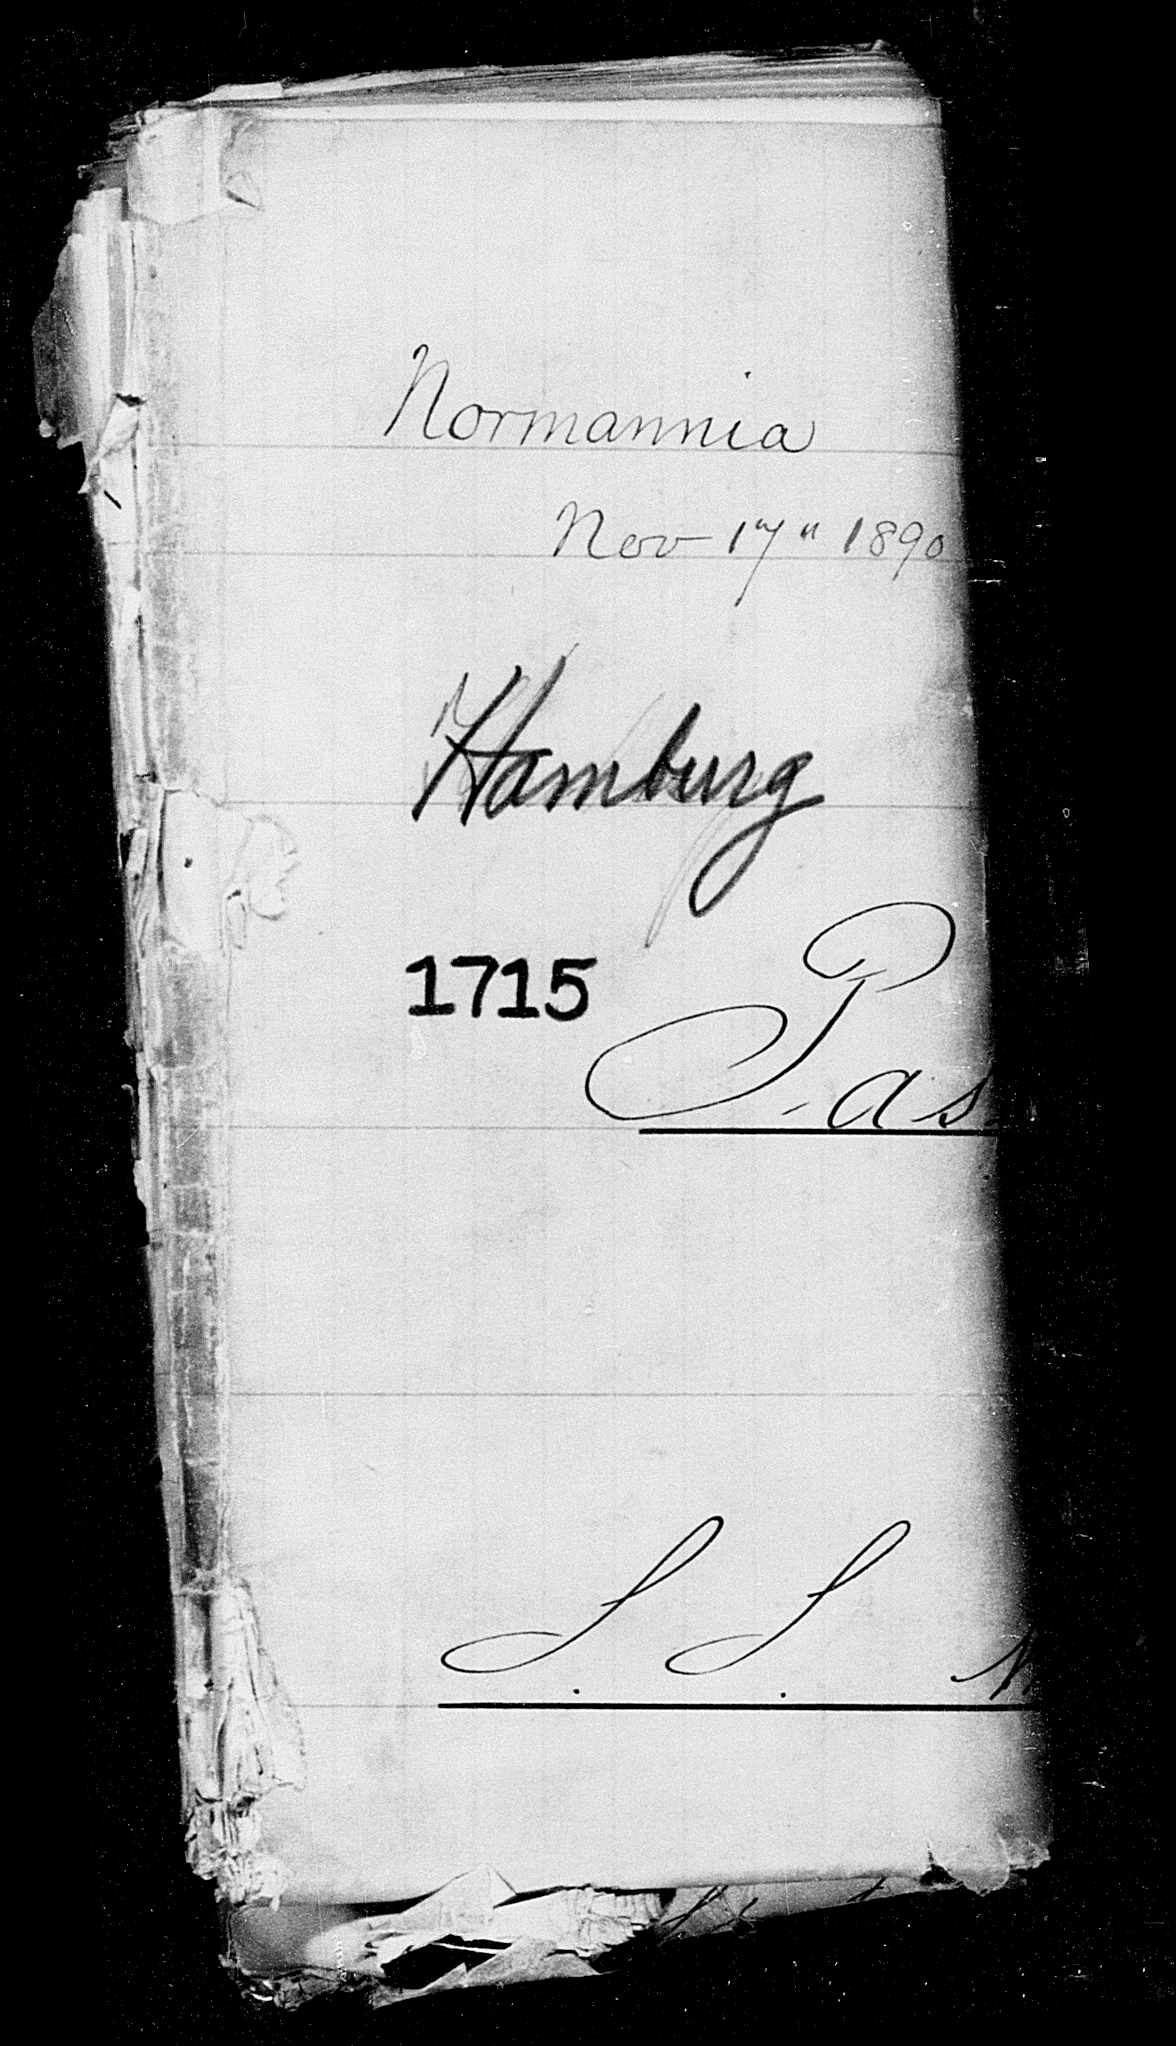 Normannia
Nov 17" 1890
Hamburg
1715
Pas
S. S. N